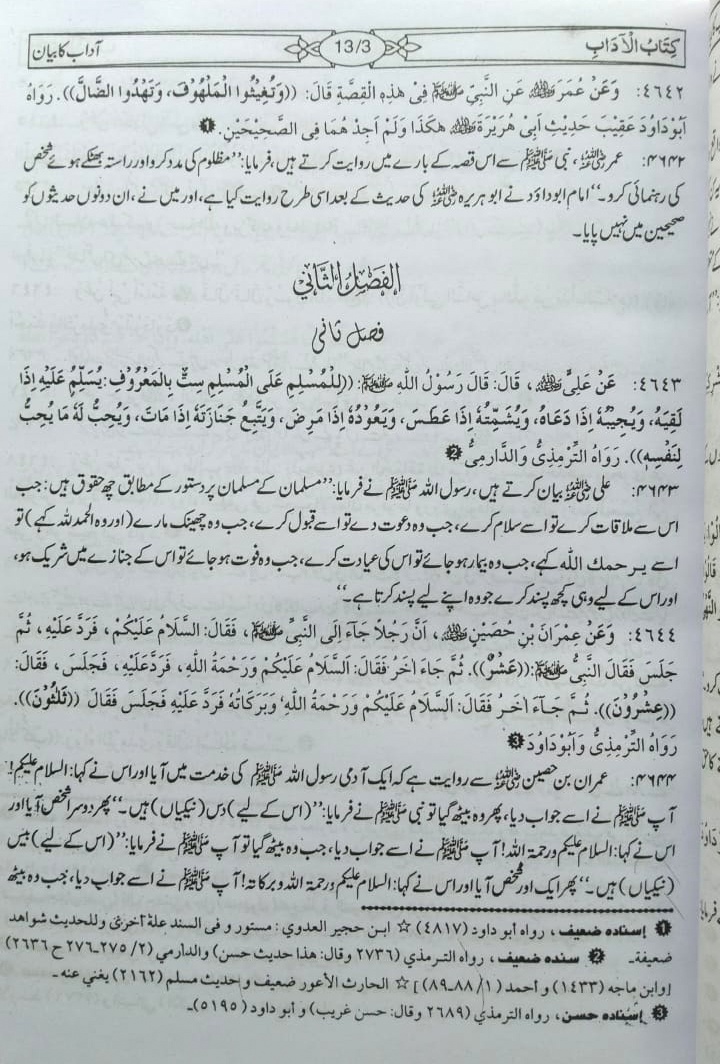 كِتَابُ الْآدَابِ 13/3 آداب کا بیان
٤٦٤٢: وَعَنْ عُمَرَ رضی اللہ عنہ عَنِ النَّبِيِّ ﷺ فِیْ هٰذِهِ الْقِصَّةِ قَالَ: ((وَتُغِيْثُوا الْمَلْهُوْفَ، وَتَهْدُوا الضَّالَّ)). رَوَاهُ
اَبُوْدَاوُدَ عَقِيْبَ حَدِيْثِ اَبِیْ هُرَيْرَةَ رضی اللہ عنہ هٰكَذَا وَلَمْ اَجِدْ هُمَا فِی الصَّحِيْحَيْنِ. ❶
۴۶۴۲: عمر رضی اللہ عنہ، نبی ﷺ سے اس قصہ کے بارے میں روایت کرتے ہیں، فرمایا: ”مظلوم کی مدد کرو اور راستہ بھٹکے ہوئے شخص
کی رہنمائی کرو۔“ امام ابوداؤد نے ابو ہریرہ رضی اللہ عنہ کی حدیث کے بعد اسی طرح روایت کیا ہے، اور میں نے، ان دونوں حدیثوں کو
صحیحین میں نہیں پایا۔
الفَصْلُ الثَّانِي
فصل ثانی
٤٦٤٣: عَنْ عَلِیٍّ رضی اللہ عنہ، قَالَ: قَالَ رَسُوْلُ اللّٰهِ ﷺ: ((لِلْمُسْلِمِ عَلَی الْمُسْلِمِ سِتٌّ بِالْمَعْرُوْفِ: يُسَلِّمُ عَلَيْهِ اِذَا
لَقِيَهُ، وَيُجِيْبُهُ اِذَا دَعَاهُ، وَيُشَمِّتُهُ اِذَا عَطَسَ، وَيَعُوْدُهُ اِذَا مَرِضَ، وَيَتَّبِعُ جَنَازَتَهُ اِذَا مَاتَ، وَيُحِبُّ لَهُ مَا يُحِبُّ
لِنَفْسِهِ)). رَوَاهُ التِّرْمِذِیُّ وَالدَّارِمِیُّ ❷
۴۶۴۳: علی رضی اللہ عنہ بیان کرتے ہیں، رسول اللہ ﷺ نے فرمایا: ”مسلمان کے مسلمان پر دستور کے مطابق چھ حقوق ہیں: جب
اس سے ملاقات کرے تو اسے سلام کرے، جب وہ دعوت دے تو اسے قبول کرے، جب وہ چھینک مارے (اور وہ الحمدللہ کہے) تو
اسے يرحمك الله کہے، جب وہ بیمار ہو جائے تو اس کی عیادت کرے، جب وہ فوت ہو جائے تو اس کے جنازے میں شریک ہو،
اور اس کے لیے وہی کچھ پسند کرے جو وہ اپنے لیے پسند کرتا ہے۔“
٤٦٤٤: وَعَنْ عِمْرَانَ بْنِ حُصَيْنٍ رضی اللہ عنہ، اَنَّ رَجُلًا جَآءَ اِلَی النَّبِیِّ ﷺ، فَقَالَ: السَّلَامُ عَلَيْكُمْ، فَرَدَّ عَلَيْهِ، ثُمَّ
جَلَسَ فَقَالَ النَّبِیُّ ﷺ: ((عَشْرٌ)). ثُمَّ جَاءَ اٰخَرُ فَقَالَ: اَلسَّلَامُ عَلَيْكُمْ وَرَحْمَةُ اللّٰهِ، فَرَدَّ عَلَيْهِ، فَجَلَسَ، فَقَالَ:
((عِشْرُوْنَ)). ثُمَّ جَآءَ اٰخَرُ فَقَالَ: اَلسَّلَامُ عَلَيْكُمْ وَرَحْمَةُ اللّٰهِ وَبَرَكَاتُهُ فَرَدَّ عَلَيْهِ فَجَلَسَ فَقَالَ ((ثَلٰثُوْنَ)).
رَوَاهُ التِّرْمِذِیُّ وَاَبُوْدَاوُدَ ❸
۴۶۴۴: عمران بن حصین رضی اللہ عنہ سے روایت ہے کہ ایک آدمی رسول اللہ ﷺ کی خدمت میں آیا اور اس نے کہا: السلام علیکم!
آپ ﷺ نے اسے جواب دیا، پھر وہ بیٹھ گیا تو نبی ﷺ نے فرمایا: ”(اس کے لیے) دس (نیکیاں) ہیں۔“ پھر دوسرا شخص آیا اور
اس نے کہا: السلام علیکم ورحمۃ اللہ! آپ ﷺ نے اسے جواب دیا، جب وہ بیٹھ گیا تو آپ ﷺ نے فرمایا: ”(اس کے لیے) بیس
(نیکیاں) ہیں۔“ پھر ایک اور شخص آیا اور اس نے کہا: السلام علیکم ورحمۃ اللہ وبرکاتہ! آپ ﷺ نے اسے جواب دیا، جب وہ بیٹھ
❶ إسناده ضعيف، رواه أبو داود (٤٨١٧) ☆ ابن حجير العدوي: مستور و في السند علة أخرى وللحديث شواهد
ضعيفة۔ ❷ سنده ضعيف، رواه الترمذي (٢٧٣٦ وقال: هذا حديث حسن) والدارمي (٢/ ٢٧٥۔٢٧٦ ح ٢٦٣٦)
[وابن ماجه (١٤٣٣) و أحمد (١/ ٨٨۔٨٩)] ☆ الحارث الأعور ضعيف و حديث مسلم (٢١٦٢) يغني عنه۔
❸ إسناده حسن، رواه الترمذي (٢٦٨٩ وقال: حسن غريب) و أبو داود (٥١٩٥)۔